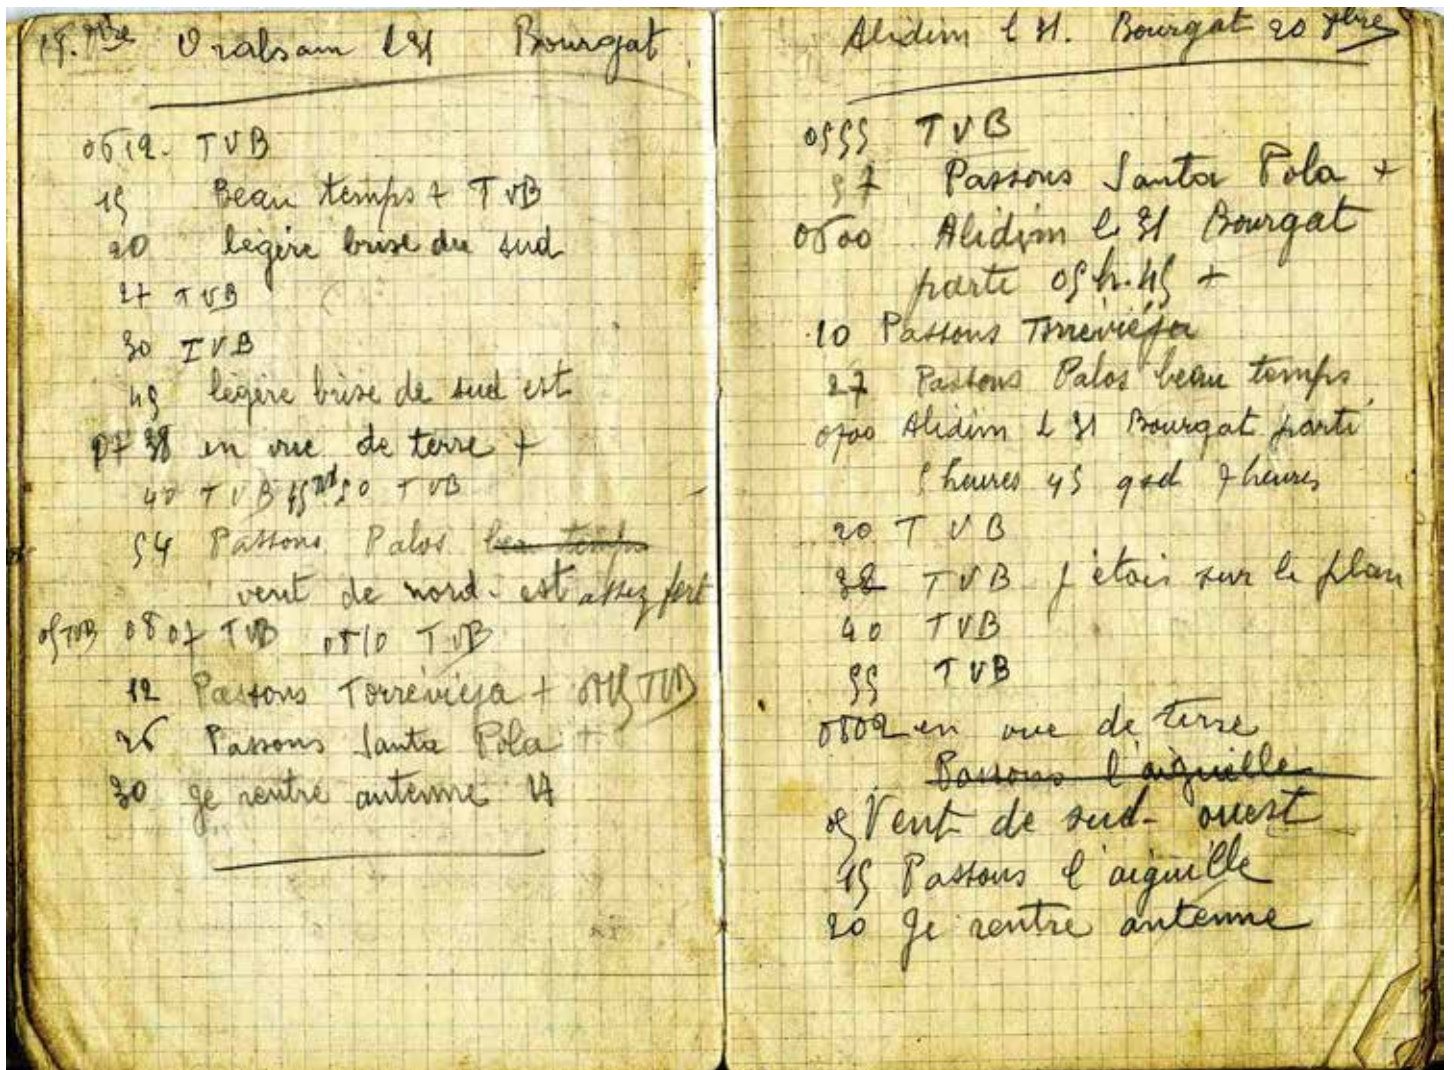 Oralsam L 31 Bourgat
0612. TVB
15 Beau temps + TVB
20 légère brise du sud
27 TVB
30 TVB
45 légère brise de sud est
07 38 en vue de terre +
40 TVB 50 TVB
54 Passons Palos beau temps
vent de nord-est assez fort
05 TVB 0807 TVB 0810 TVB
12 Passons Torrevieja + 0815 TVB
26 Passons Santa Pola +
30 je rentre antenne
Alidim L 31. Bourgat 20 7bre
0555 TVB
57 Passons Santa Pola +
0600 Alidim L 31 Bourgat
parti 05 h.45 +
10 Passons Torrevieja
27 Passons Palos beau temps
0700 Alidim L 31 Bourgat parti
5 heures 45 qsd 7 heures
20 TVB
38 TVB j'étais sur le plan
40 TVB
55 TVB
0802 en vue de terre
Passons l'aiguille
05 Vent de sud-ouest
15 Passons l'aiguille
20 Je rentre antenne